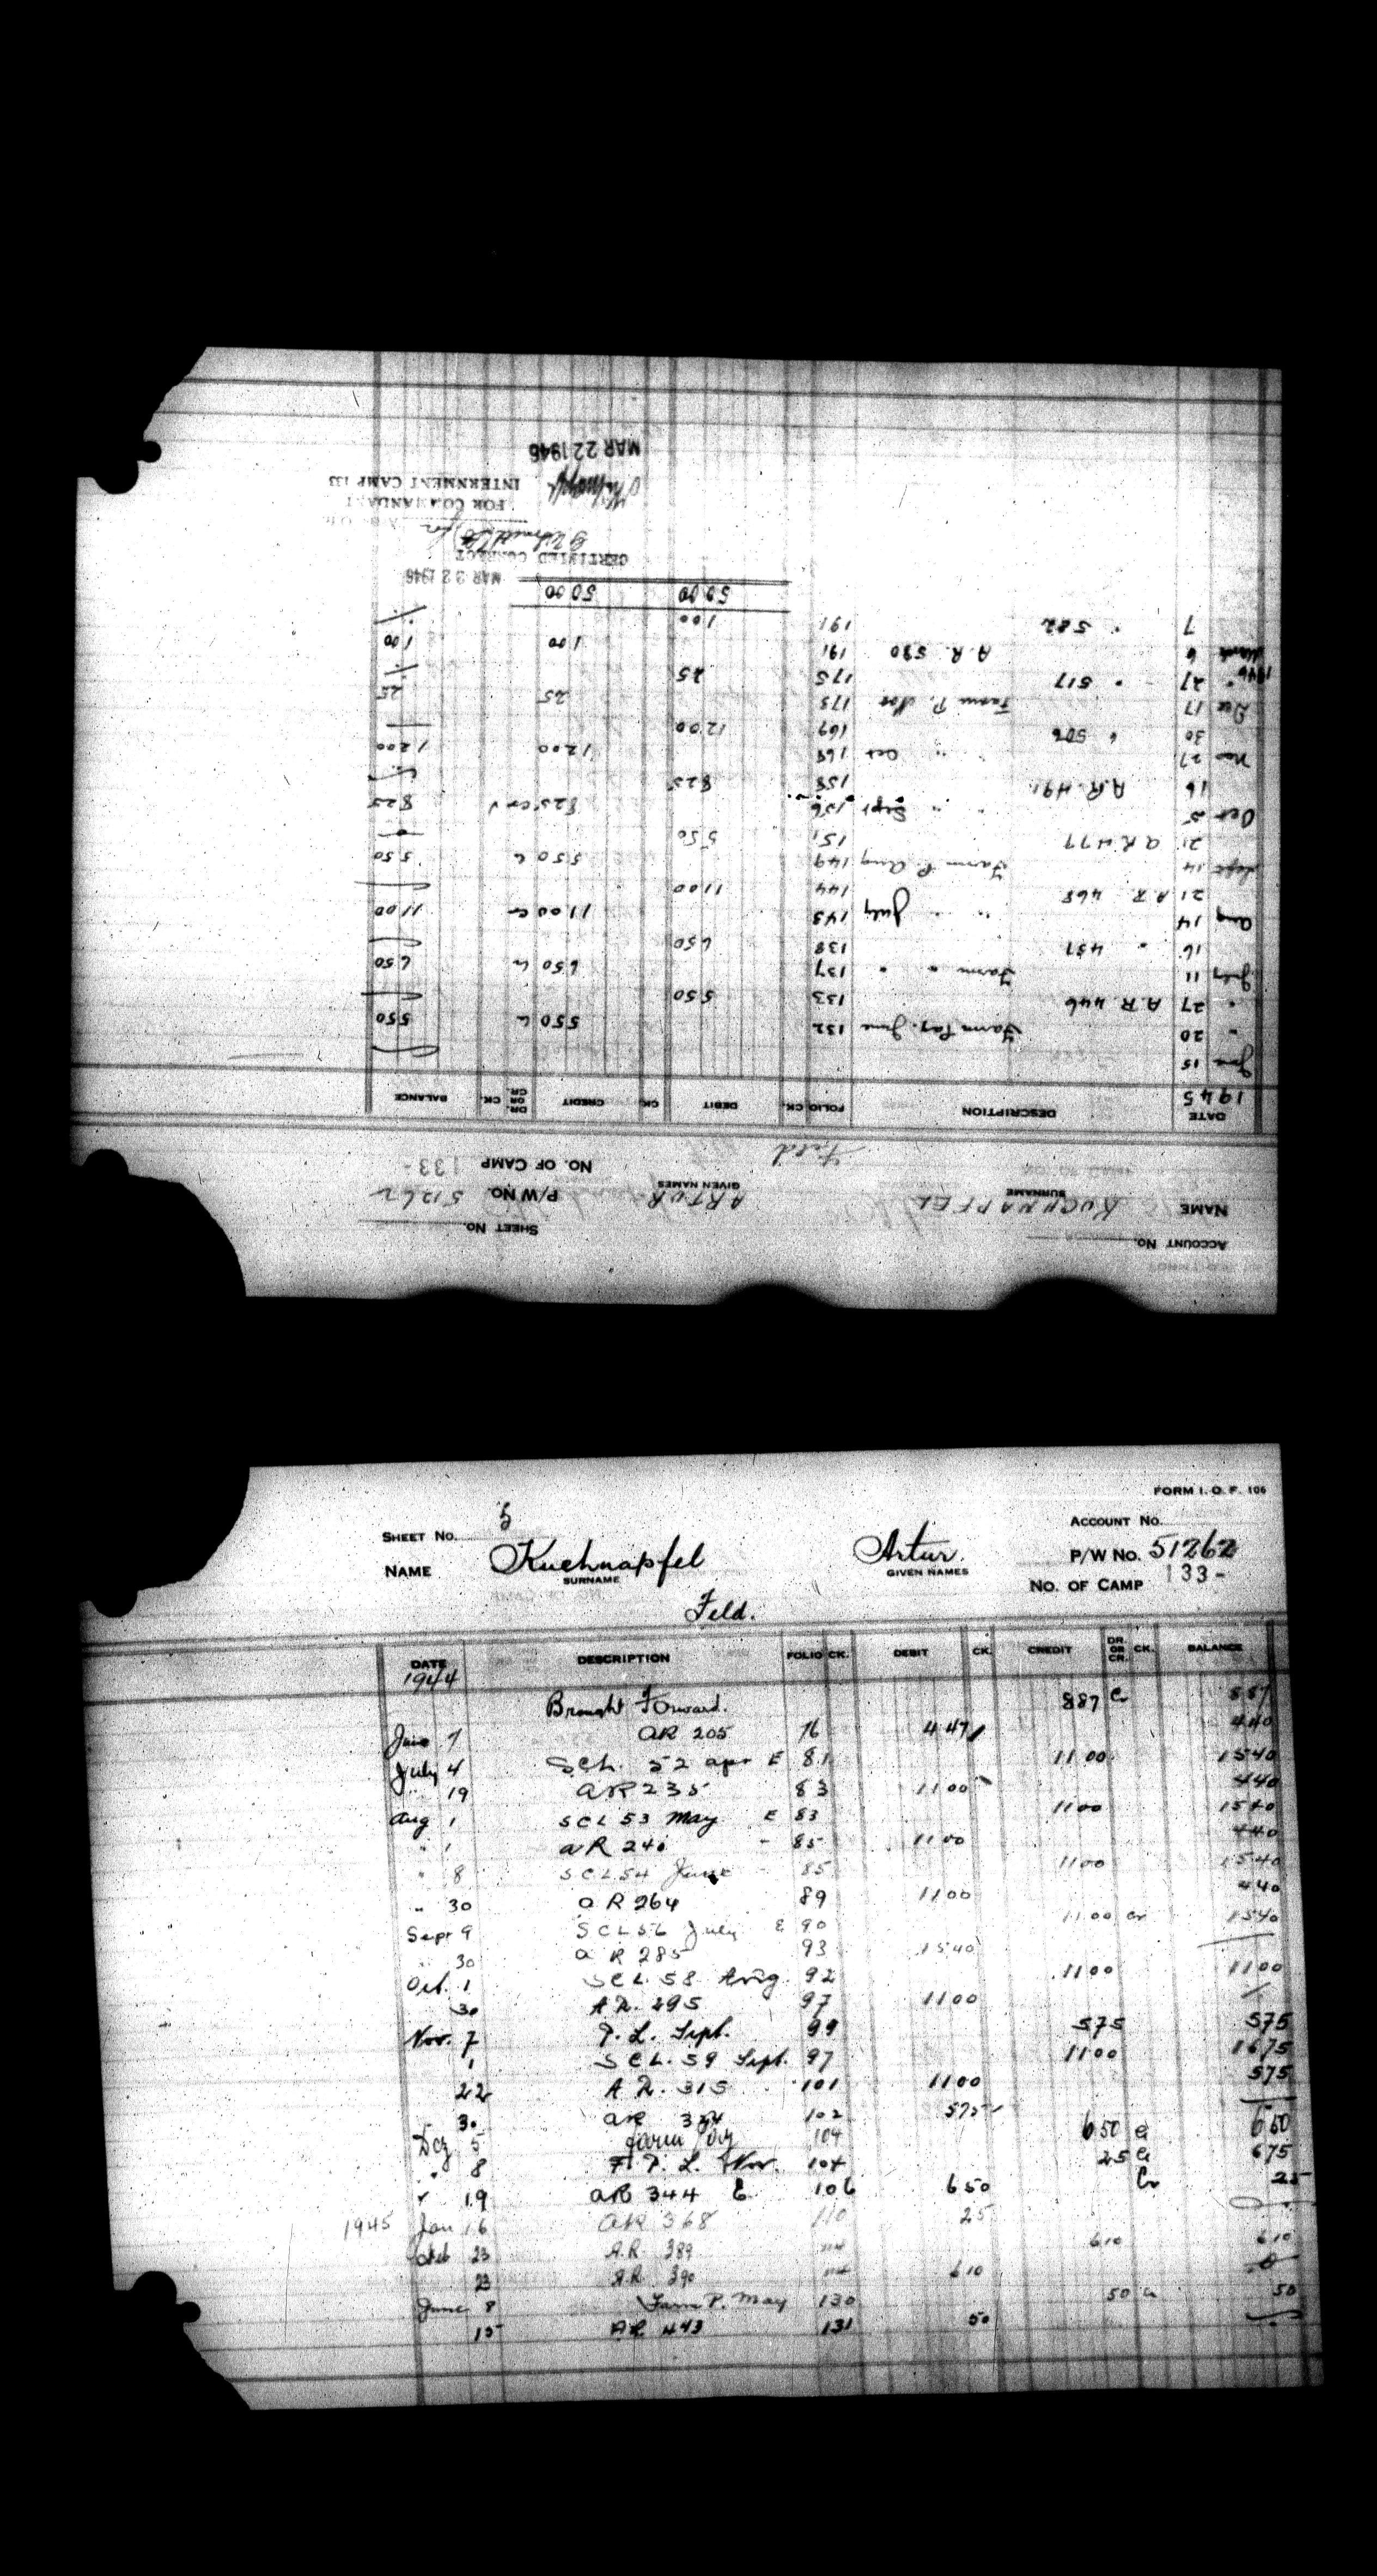 ACCOUNT NO.
SHEET NO.
NAME KUCHNAPFEL ARTUR P/W NO. 51262
SURNAME GIVEN NAMES
Feld NO. OF CAMP 133-
DATE DESCRIPTION FOLIO CK. DEBIT CK. CREDIT DR. OR CR. CK. BALANCE
1945
June 15
" 20 Farm Pay. June 132 550 550
" 27 A.R. 446 133 550
July 11 Farm " " 137 650 650
16 " 457 138 650
Aug 14 " " July 143 1100 Cr 1100
21 A R 468 144 1100
Sept 14 Farm P. Aug 149 550 550
21 A R 477 151 550
Oct 5 " " Sept 156 825 Cr 825
16 A.R. 491 158 825
Nov 27 " " Oct 168 1200 1200
30 " 506 169 1200
Dec 17 Farm P. Nov 173 25 25
" 27 " 517 175 25
1946
March 6 A.R. 580 191 100 100
7 " 582 191 100
5000 5000
MAR 22 1946
CERTIFIED CORRECT
FOR COMMANDANT
INTERNMENT CAMP 133
MAR 22 1946
FORM I.O.F. 106
SHEET NO. ACCOUNT NO.
NAME Kuehnapfel Artur. P/W NO. 51262
SURNAME GIVEN NAMES
NO. OF CAMP 133-
Feld.
DATE DESCRIPTION FOLIO CK. DEBIT CK. CREDIT DR. OR CR. CK. BALANCE
1944
Brought Forward. 887 Cr 887
June 7 AR 205 76 447 440
July 4 SCL. 52 apr E 81 1100 1540
" 19 AR 235 83 1100 440
Aug 1 SCL 53 May E 83 1100 1540
" 1 AR 240 85 1100 440
" 8 SCL 54 June 85 1100 1540
" 30 AR 264 89 1100 440
Sept 9 SCL 56 July E 90 1100 Cr 1540
30 AR 285 93 1540
Oct. 1 SCL. 58 Aug. 92 1100 1100
30 AR. 295 97 1100
Nov. 7 P. L. Sept. 99 575 575
1 SCL. 59 Sept. 97 1100 1675
22 A R. 315 101 1100 575
30 AR 334 102 575
Dec 5 Farm Pay 104 650 Cr 650
" 8 F. P. L. Nov. 104 25 Cr 675
" 19 AR 344 E 106 650 Cr 25
1945 Jan 16 AR 368 110 25
Feb 23 A.R. 389 114 610 610
23 A.R. 390 114 610
June 8 Farm P. May 130 50 Cr 50
15 AR 443 131 50